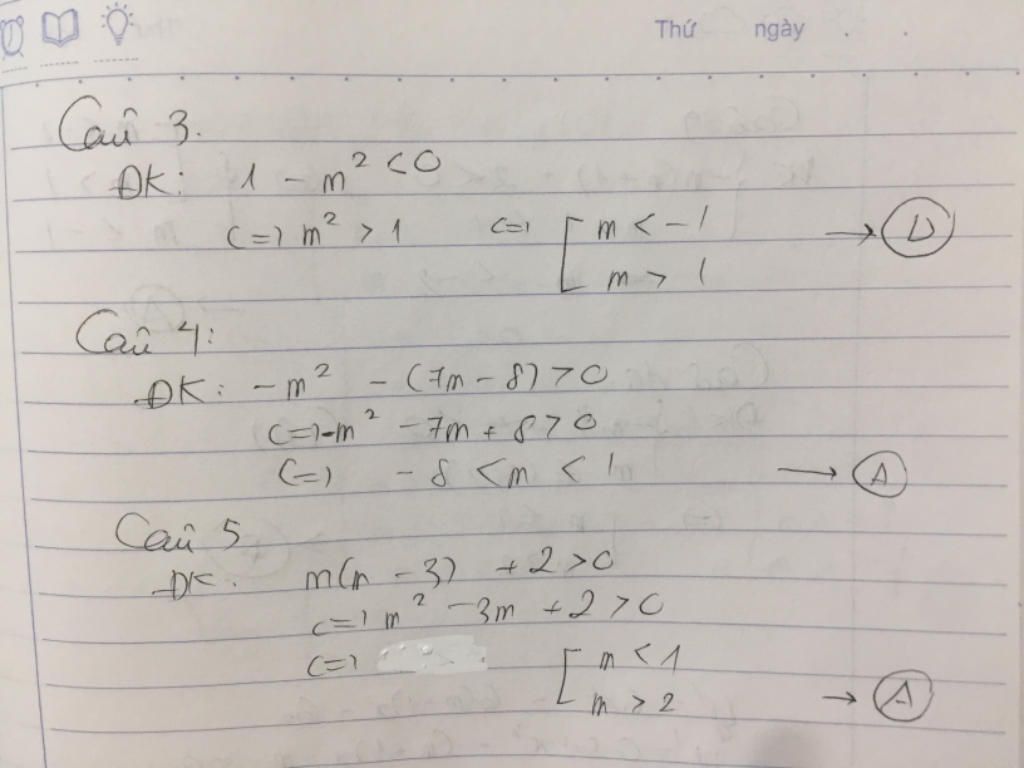 Thứ ngày
Câu 3.
ĐK: 1 - m² < 0
<=> m² > 1 <=> [ m < -1 → D
m > 1
Câu 4:
ĐK: -m² - (7m - 8) > 0
<=> -m² - 7m + 8 > 0
<=> -8 < m < 1 → A
Câu 5
ĐK: m(m - 3) + 2 > 0
<=> m² - 3m + 2 > 0
<=> [ m < 1
m > 2 → A